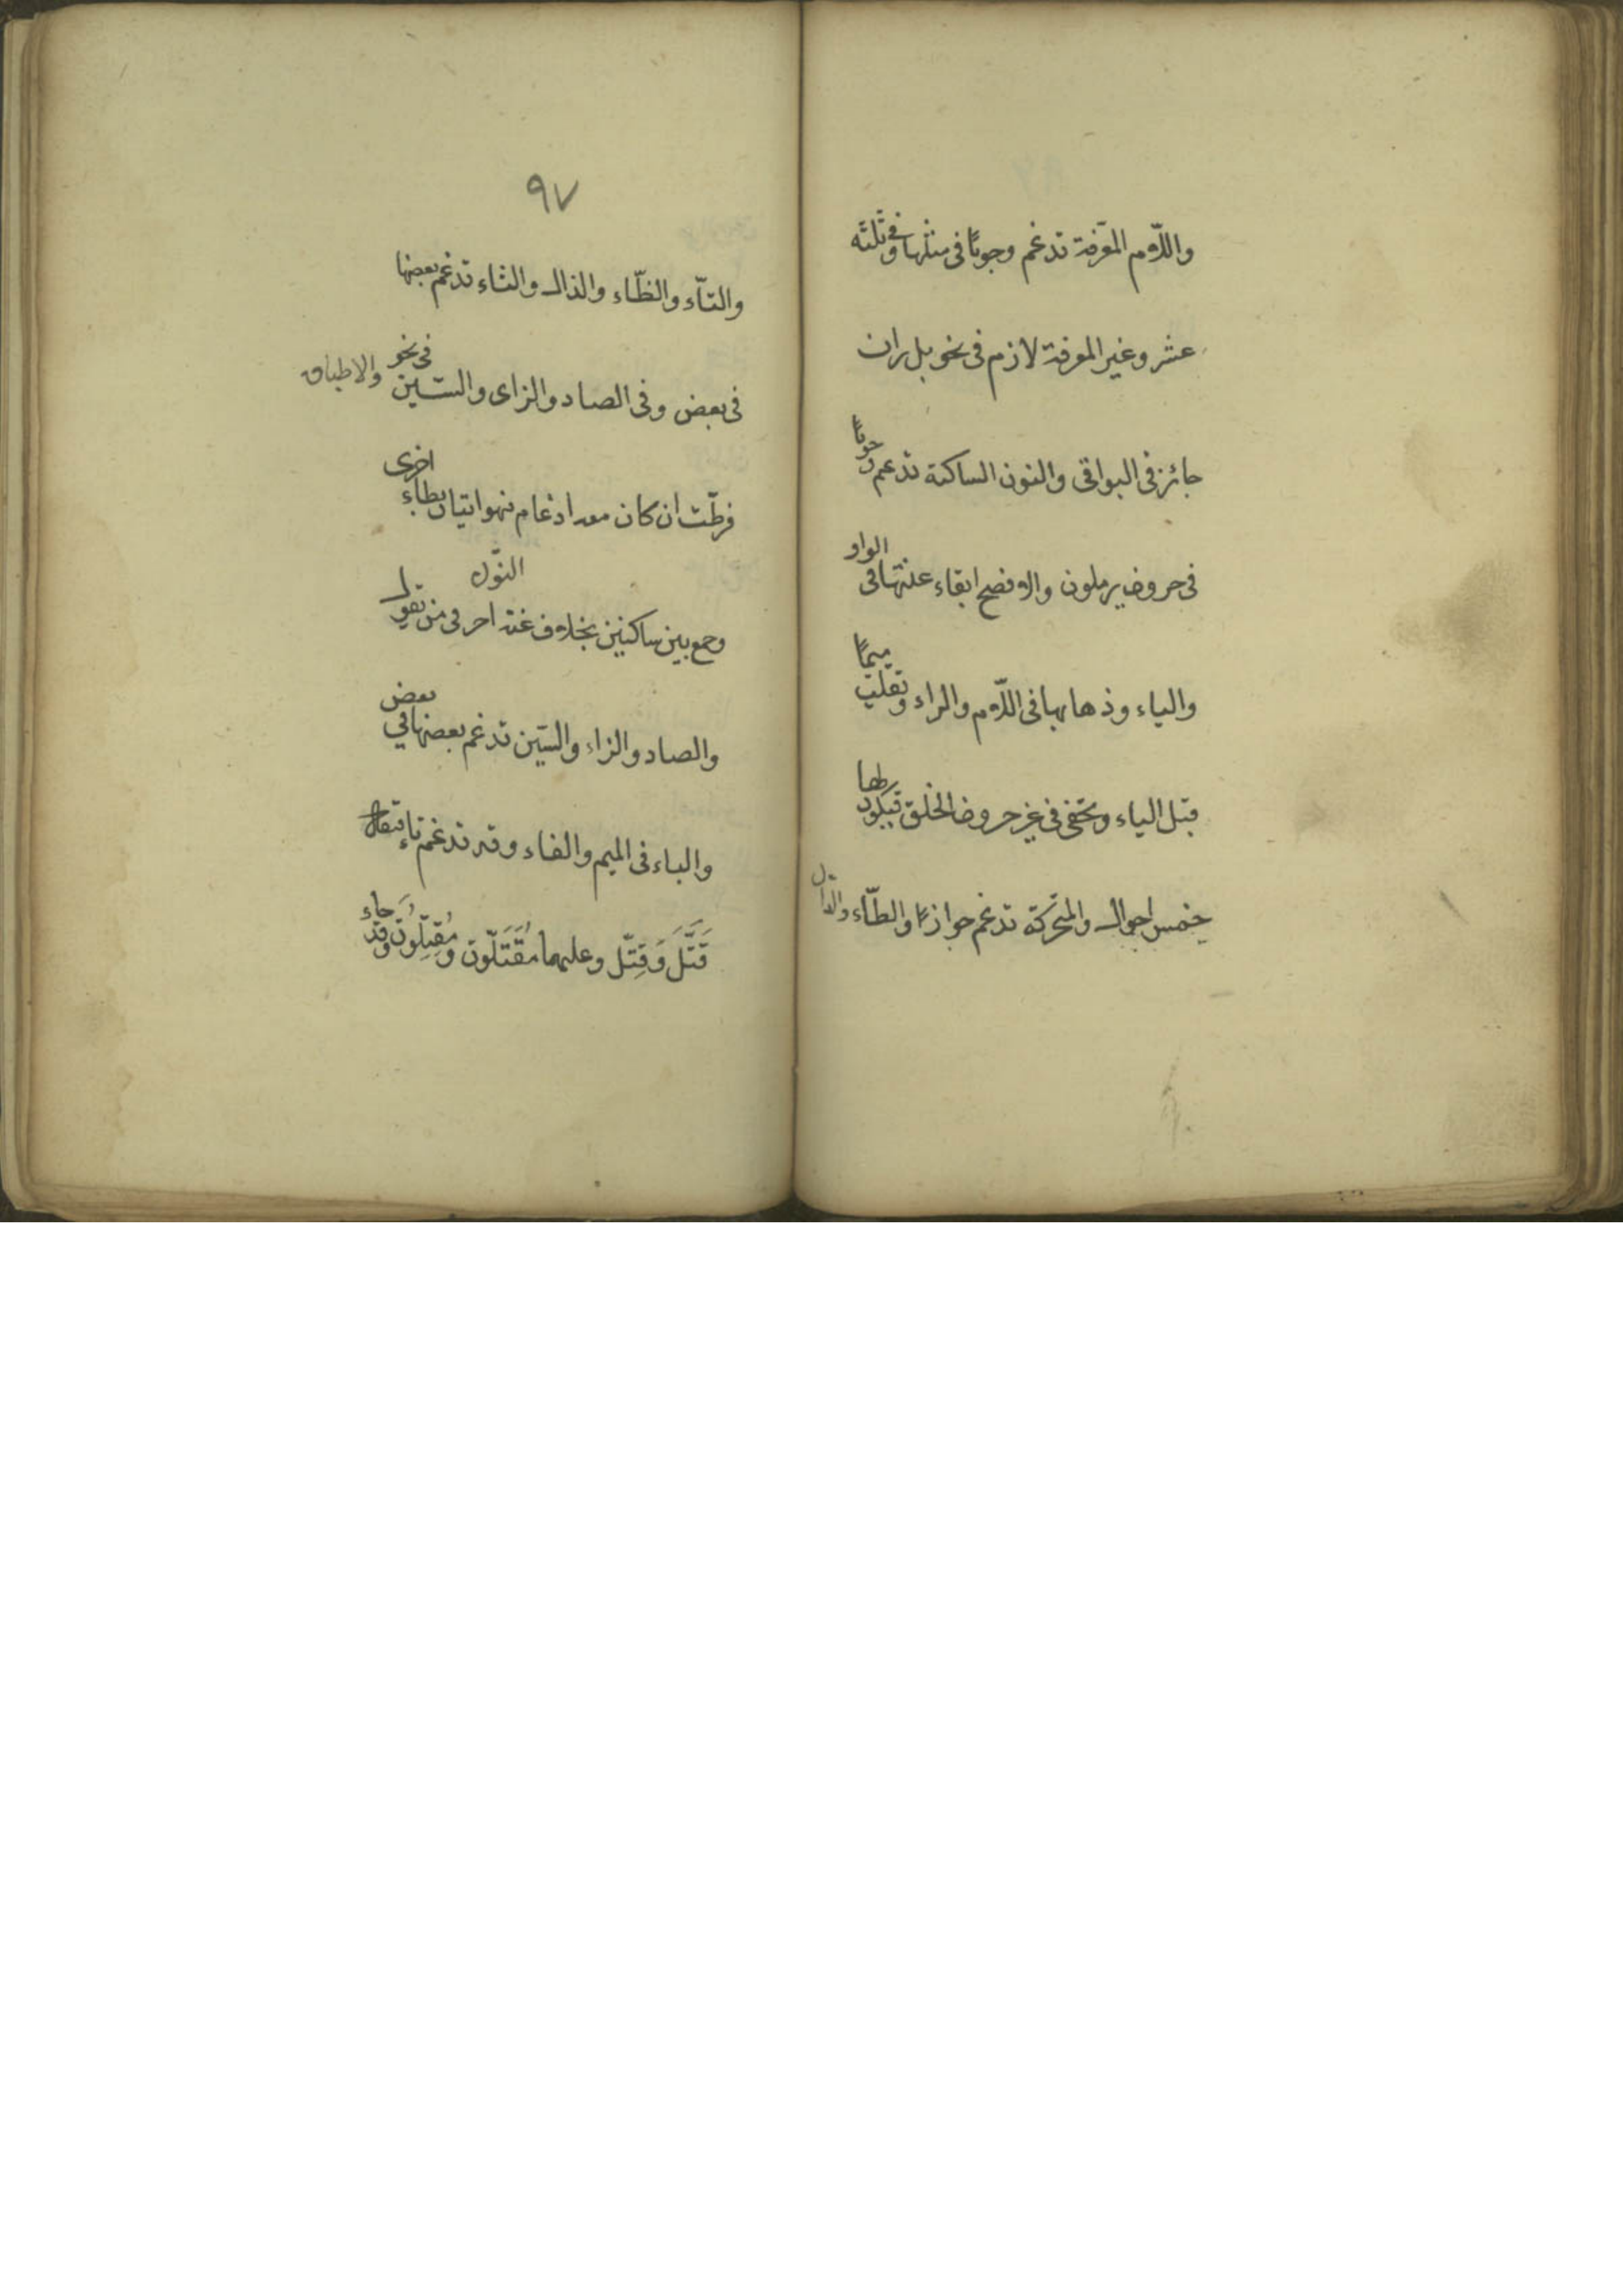 واللّام المعرّفة تدغم وجوبًا فى مثلها وفى ثلثه
عشر وغير المعرفة لازم فى نحو بل ران
جائز فى البواقى والنون الساكنة تدغم وجوبًا
فى حروف يرملون والافصح ابقاء غنتها فى الواو
والياء وذهابها فى اللّام والراء وتقلب ميمًا
قبل الباء وتخفى فى غير حروف الحلق فيكون لها
خمس احوال والمتحركة تدغم جوازًا والطّاء والدال
٩٧
والتّاء والظّاء والذال والثاء تدغم بعضها
فى بعض وفى الصاد والزاى والسّين والاطباق فى نحو
فرطّت ان كان معه ادغام فهو اتيان بطاء اخرى
وجمع بين ساكنين بخلاف غنة النّون فى من يقول
والصاد والزاء والسّين تدغم بعضها في بعض
والباء فى الميم والفاء وقد تدغم تاء
قَتَّلَ وَقِتَّل وعليهما مُقَتَّلُون ومُقِتِّلُون وقد جاء